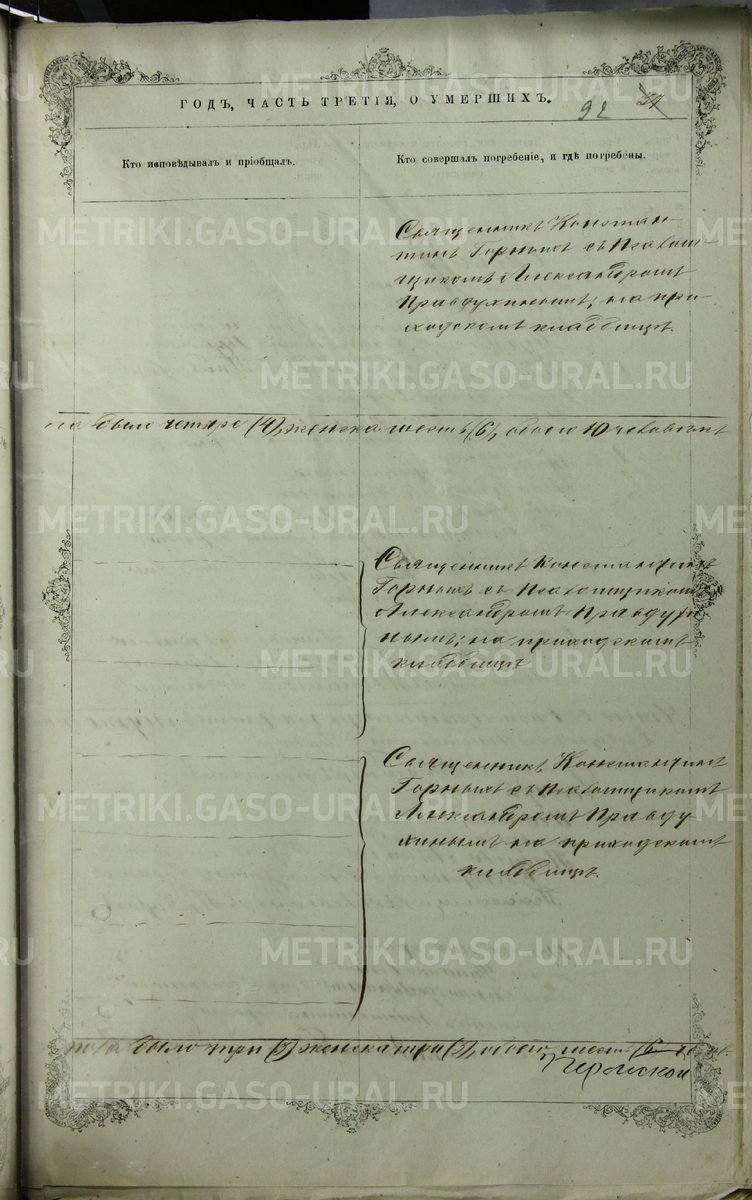 ГОДЪ, ЧАСТЬ ТРЕТІЯ, О УМЕРШИХЪ.
92
Кто исповѣдывалъ и пріобщалъ.
Кто совершалъ погребеніе, и гдѣ погребены.
Священникъ Констан-
тинъ Горныхъ съ Псалом-
щикомъ Александромъ
Правдухинымъ, на при-
ходскомъ кладбищѣ.
на было четыре (4), женска шесть (6), обоего 10 человѣкъ
Священникъ Константинъ
Горныхъ съ Псаломщикомъ
Александромъ Правдухи
нымъ, на приходскомъ
кладбищѣ
Священникъ Константинъ
Горныхъ съ Псаломщикомъ
Александромъ Правду
хинымъ на приходскомъ
кладбищѣ.
пола было три (3) женска три (3), обоего шесть (6)
METRIKI.GASO-URAL.RU